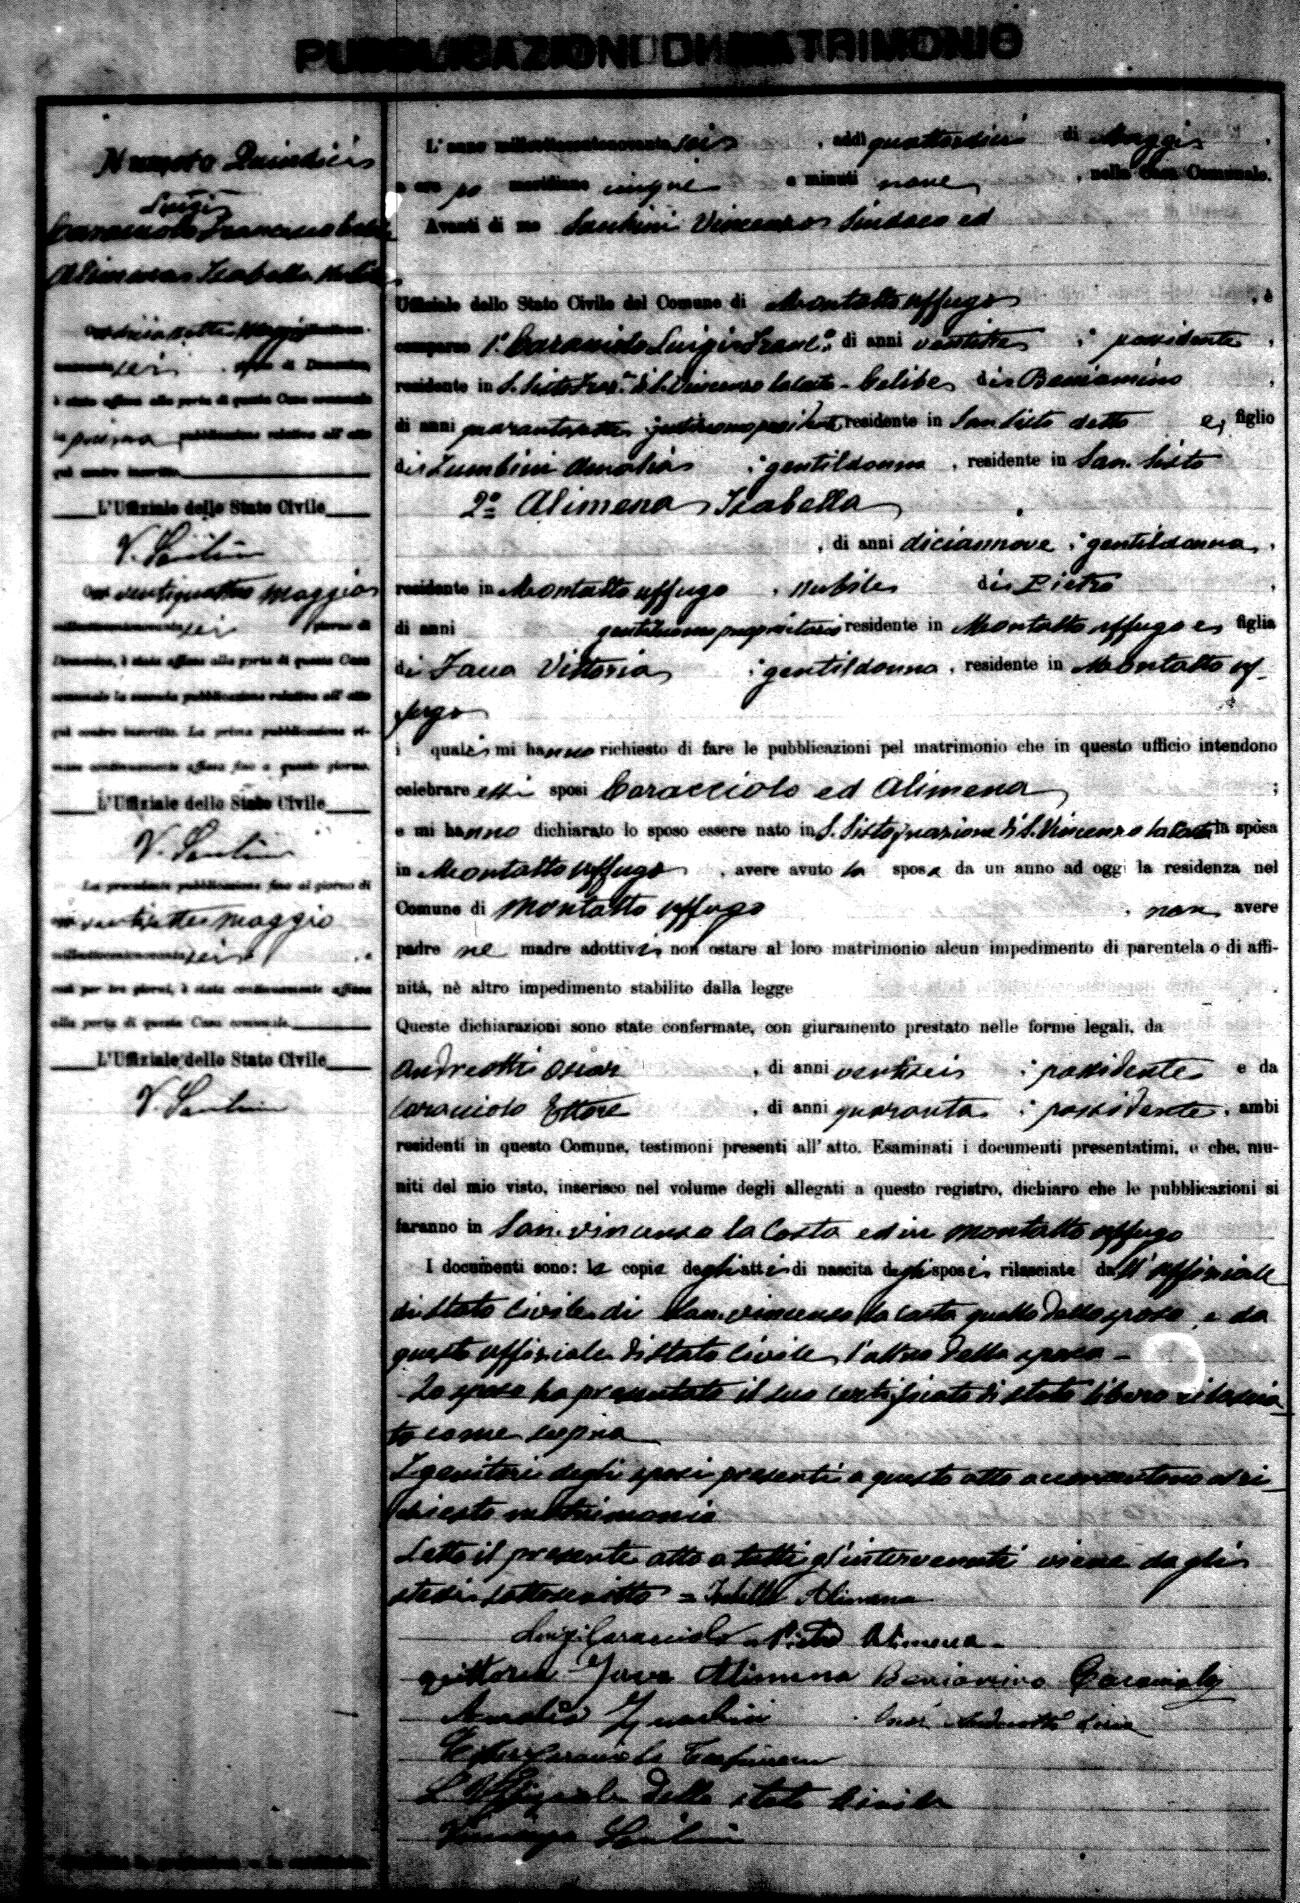 PUBBLICAZIONI DI MATRIMONIO
Numero Quindici
Luigi
Caracciolo Francesco
Alimena Isabella
sei di Domenica,
è stata affissa alla porta di questa Casa comunale
la prima pubblicazione relativa all'atto
qui contro inscritto
L'Uffiziale dello Stato Civile
Oggi ventiquattro maggio
millottocentonovantasei giorno di
Domenica, è stata affissa alla porta di questa Casa
comunale la seconda pubblicazione relativa all'atto
qui contro inscritto. La prima pubblicazione ri-
mase continuamente affissa fino a questo giorno.
L'Uffiziale dello Stato Civile
La precedente pubblicazione fino al giorno di
oggi maggio
millottocentonovantasei, e
così per tre giorni, è stata continuamente affissa
alla porta di questa Casa comunale.
L'Uffiziale dello Stato Civile
L'anno millottocentonovantasei, addì quattordici di Maggio,
a ore po meridiane cinque e minuti nove, nella Casa Comunale.
Avanti di me Vincenzo Sindaco ed
Uffiziale dello Stato Civile del Comune di Montalto Uffugo, è
comparso 1º Caracciolo Luigi Franc.º, di anni ; possidente,
residente in S. Sisto Fraz.e di S. Vincenzo la Costa - Celibe, di Beniamino,
di anni residente in San Sisto detto e, figlio
di Zumbini Amalia ; gentildonna, residente in San Sisto
2º Alimena Isabella
, di anni diciannove ; gentildonna,
residente in Montalto Uffugo, nubile di Pietro,
di anni gentiluomo proprietario residente in Montalto Uffugo e, figlia
di Jaua Vittoria ; gentildonna, residente in Montalto Uf-
fugo
i quali mi hanno richiesto di fare le pubblicazioni pel matrimonio che in questo ufficio intendono
celebrare essi sposi Caracciolo ed Alimena ;
e mi hanno dichiarato lo sposo essere nato in S. Sisto frazione di S. Vincenzo la Costa la sposa
in Montalto Uffugo, avere avuto la sposa da un anno ad oggi la residenza nel
Comune di Montalto Uffugo, non avere
padre nè madre adottivi, non ostare al loro matrimonio alcun impedimento di parentela o di affi-
nità, nè altro impedimento stabilito dalla legge
Queste dichiarazioni sono state confermate, con giuramento prestato nelle forme legali, da
Andreotti Oscar, di anni ventisei ; possidente e da
Caracciolo Ettore, di anni quaranta ; possidente, ambi
residenti in questo Comune, testimoni presenti all'atto. Esaminati i documenti presentatimi, e che, mu-
niti del mio visto, inserisco nel volume degli allegati a questo registro, dichiaro che le pubblicazioni si
faranno in San Vincenzo la Costa ed in Montalto Uffugo
I documenti sono: le copie degli atti di nascita degli sposi rilasciate dall'uffiziale
di Stato Civile di San Vincenzo la Costa quello dello sposo, e da
questo uffiziale di Stato Civile l'altro della sposa -
Lo sposo ha presentato il suo certificato di stato libero rilascia-
to come sopra
I genitori degli sposi presenti a questo atto acconsentono al ri-
chiesto matrimonio
Letto il presente atto a tutti gl'intervenuti viene dagli
stessi sottoscritto = Isabella Alimena
Luigi Caracciolo - Pietro Alimena -
Alimena Beniamino Caracciolo
Amalia Zumbini
Ettore Caracciolo
L'Uffiziale dello Stato Civile
Vincenzo